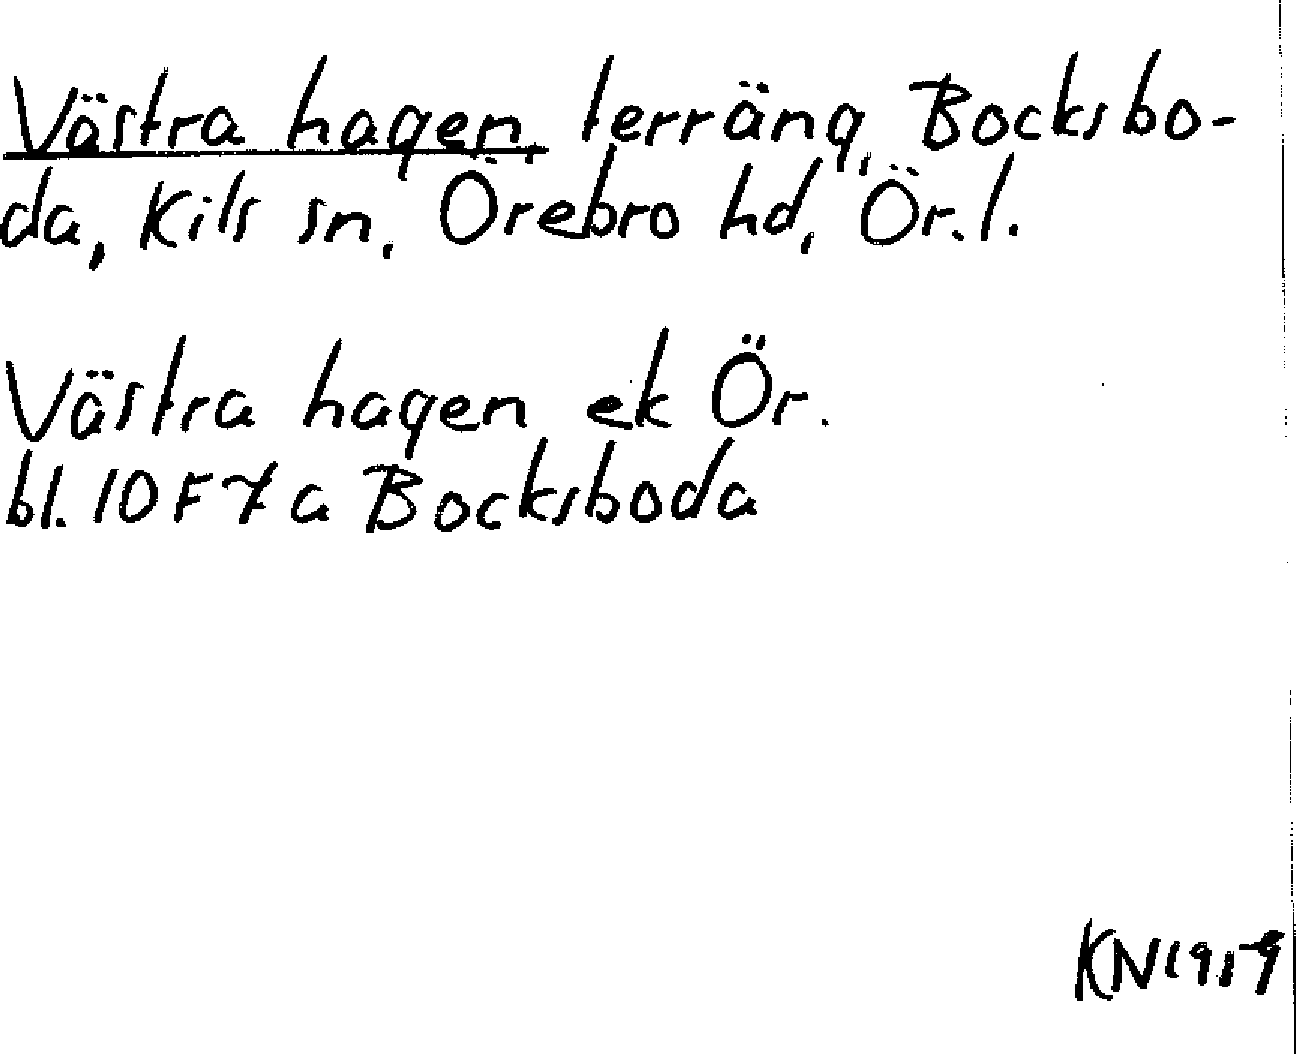 Västra hagen, terräng, Bocksbo-
da, Kils sn, Örebro hd, Ör.l.
Västra hagen ek Ör.
bl. 10F7a Bocksboda
KN1959